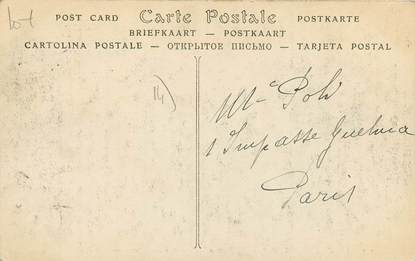 POST CARD Carte Postale POSTKARTE
BRIEFKAART — POSTKAART
CARTOLINA POSTALE — ОТКРЫТОЕ ПИСЬМО — TARJETA POSTAL
14)
Mr Poli
1 Impasse Guelma
Paris